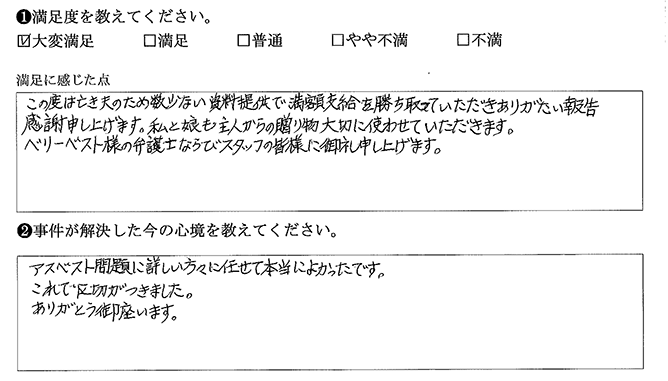 ❶満足度を教えてください。
☑大変満足 □満足 □普通 □やや不満 □不満
満足に感じた点
この度は亡き夫のため数少ない資料提供で満額支給を勝ち取っていただきありがたい報告
感謝申し上げます。私と娘も主人からの贈り物大切に使わせていただきます。
ベリーベスト様の弁護士ならびスタッフの皆様に御礼申し上げます。
❷事件が解決した今の心境を教えてください。
アスベスト問題に詳しい方々に任せて本当によかったです。
これで区切がつきました。
ありがとう御座います。